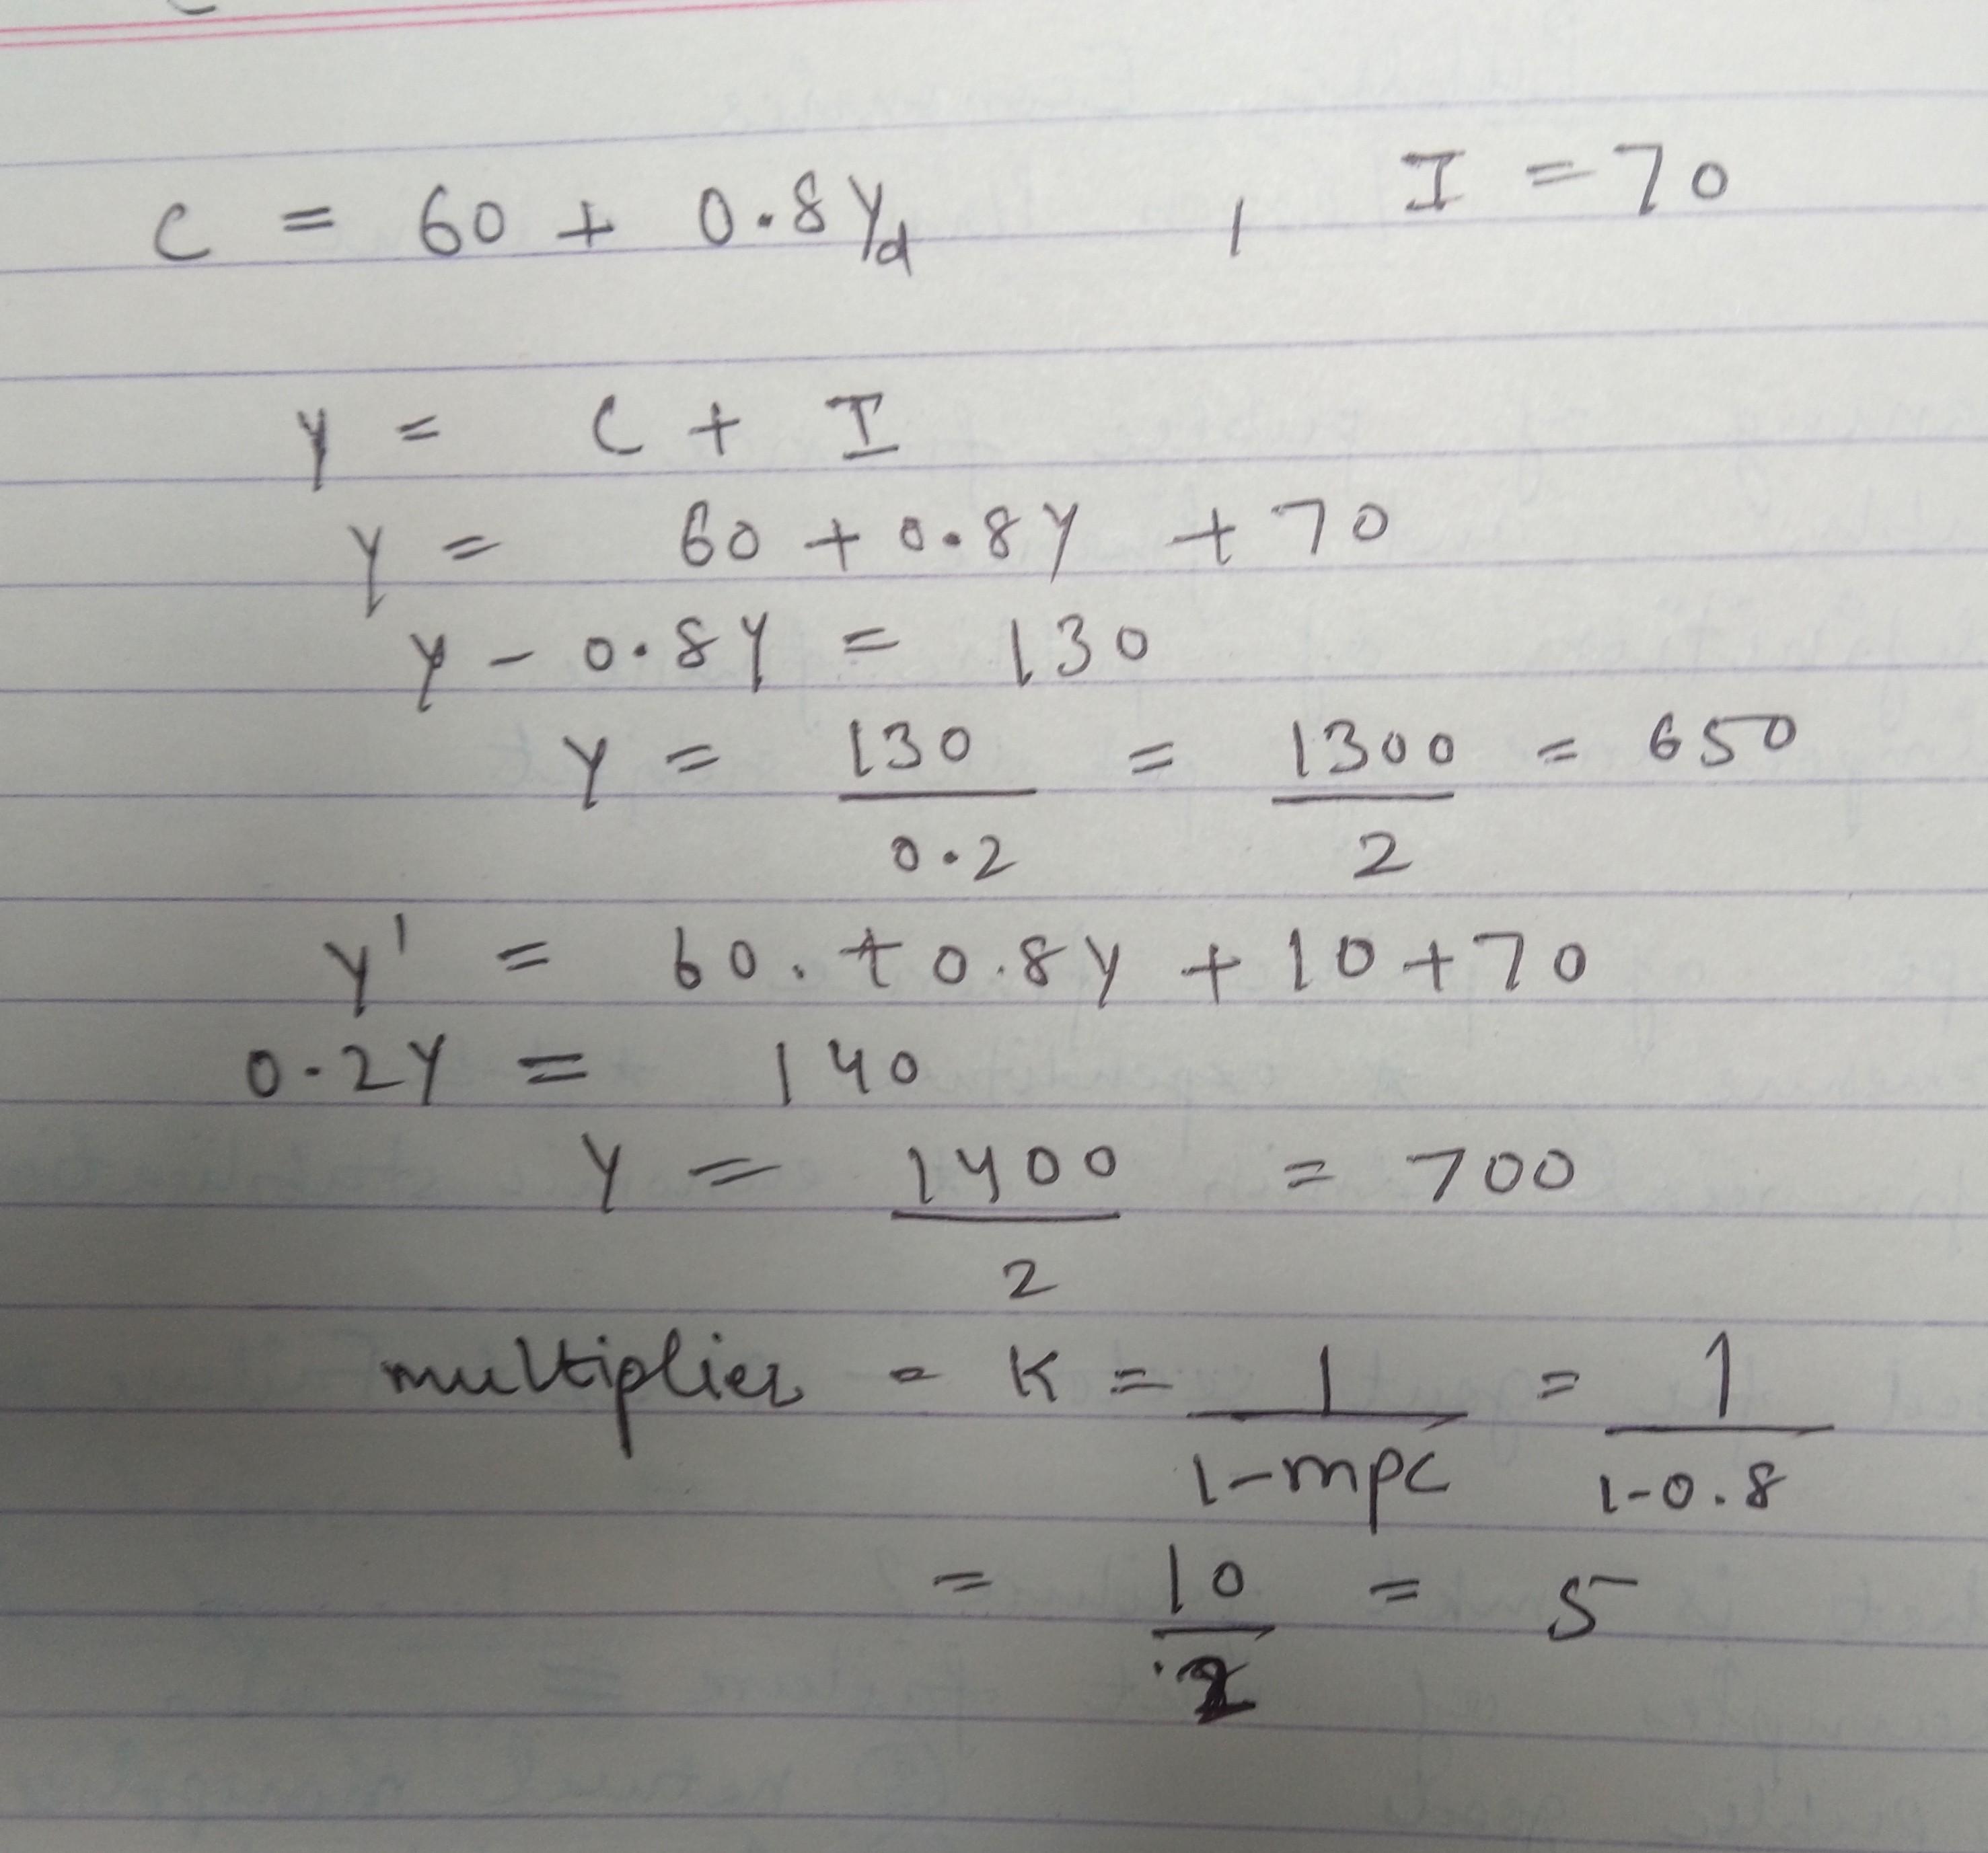 C = 60 + 0.8Yd , I = 70
Y = C + I
Y = 60 + 0.8Y + 70
Y - 0.8Y = 130
Y = 130/0.2 = 1300/2 = 650
Y' = 60. + 0.8Y + 10 + 70
0.2Y = 140
Y = 1400/2 = 700
multiplier = K = 1/1-mpc = 1/1-0.8
= 10/2 = 5